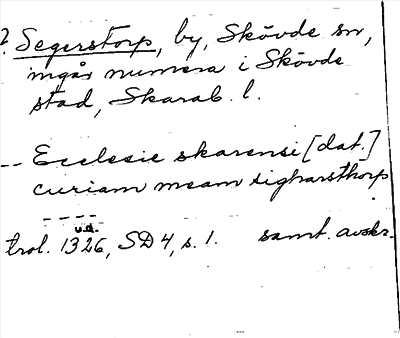 ? Segerstorp, by, Skövde sn,
ingår numera i Skövde
stad, Skarab. l.
-- Ecclesie skarensi [dat.]
curiam meam sigharsthorp
----
u.d.
trol. 1326, SD 4, s. 1. samt. avskr.